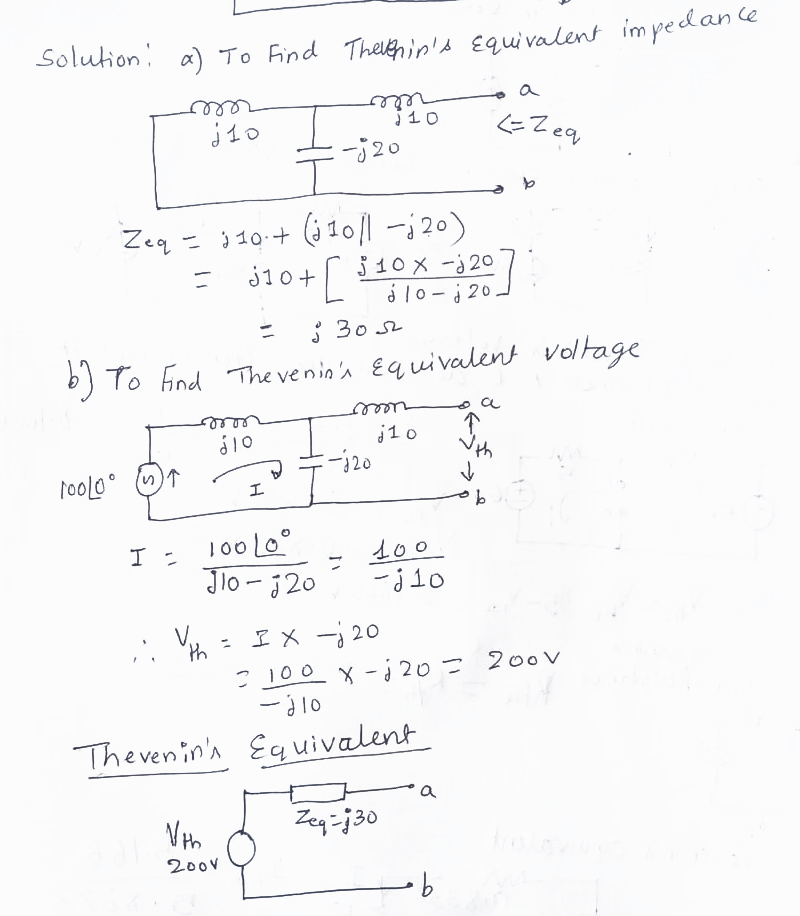 Solution: a) To Find Thevenin's Equivalent impedance
j10
j10
a
<= Zeq
-j20
b
Zeq = j10 + (j10 || -j20)
= j10 + [ j10 x -j20 / j10 - j20 ]
= j 30 Ω
b) To Find Thevenin's Equivalent voltage
j10
j10
a
100∠0°
I
-j20
Vth
b
I = 100∠0° / j10 - j20 = 100 / -j10
∴ Vth = I x -j20
= 100 / -j10 x -j20 = 200V
Thevenin's Equivalent
a
Zeq=j30
Vth
200V
b